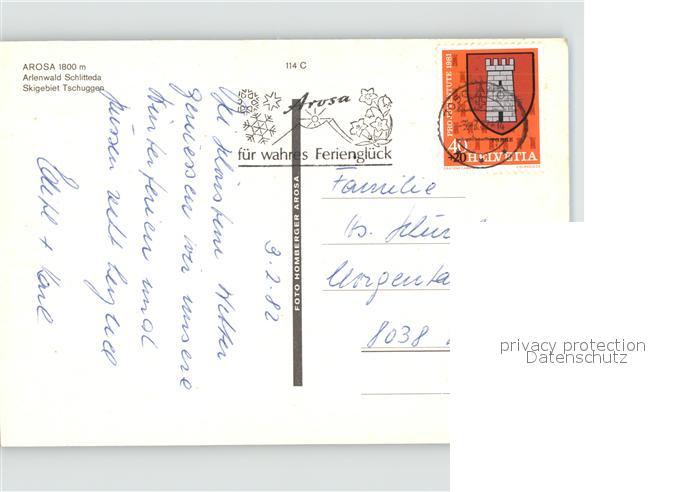 AROSA 1800 m
Arlenwald Schlitteda
Skigebiet Tschuggen
114 C
Arosa
für wahres Ferienglück
PRO JUVENTUTE 1981
40
+20 HELVETIA
FOTO HOMBERGER AROSA
3.2.82
Bei schönstem Wetter
geniessen wir unsere
Winterferien und
grüssen Euch herzlich
Edith + Karl
Familie
8038
privacy protection
Datenschutz